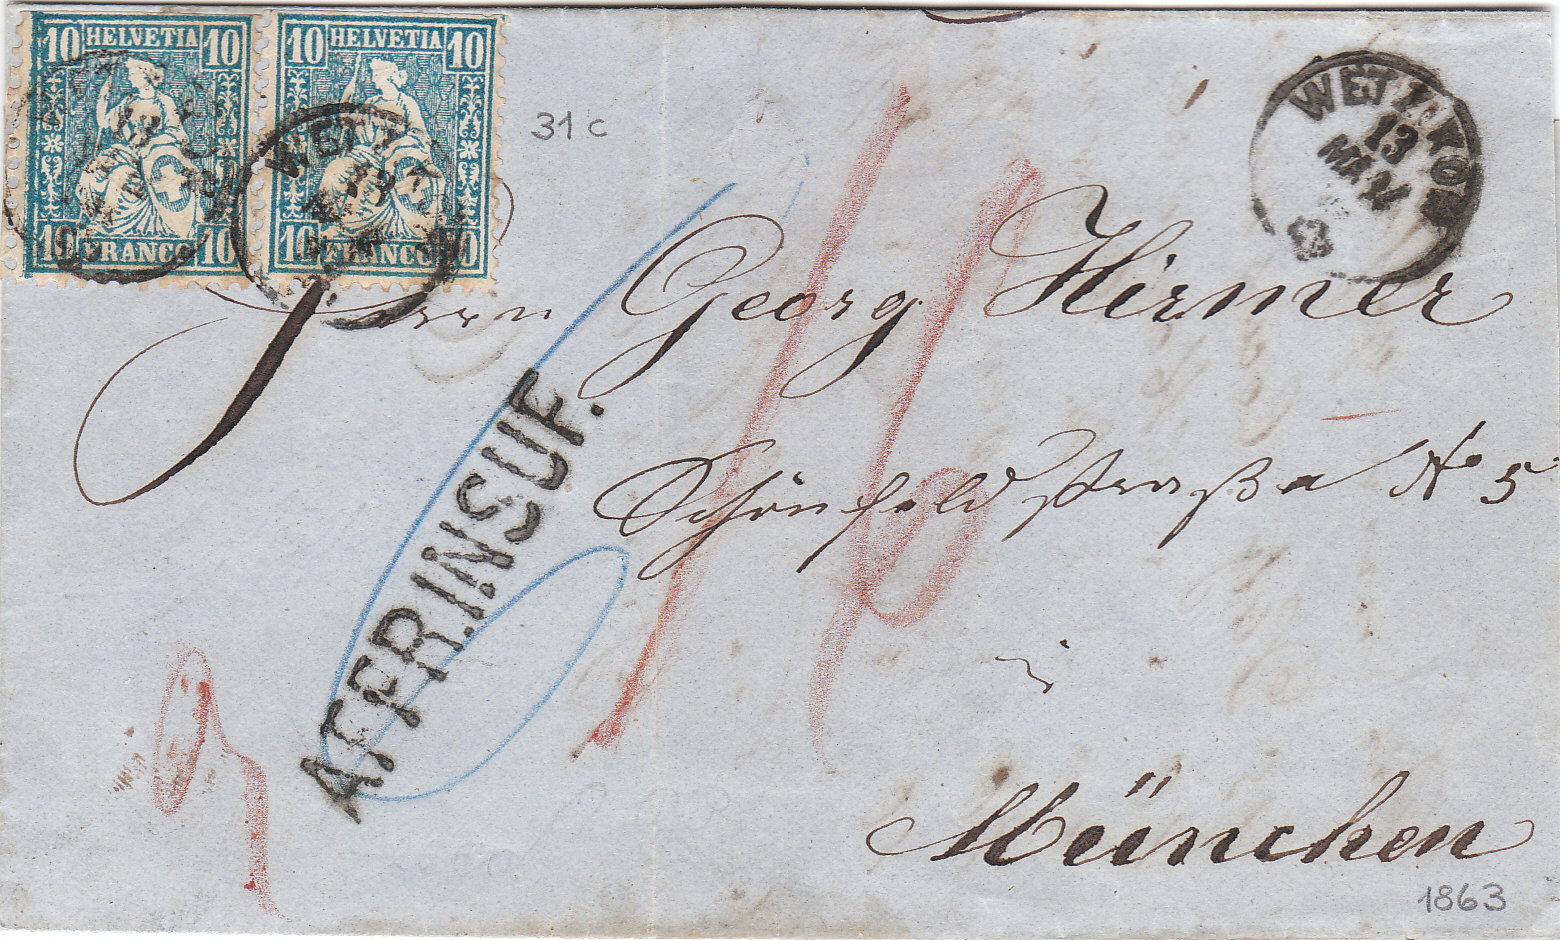 10 HELVETIA 10
10 FRANCO 10
10 HELVETIA 10
10 FRANCO 10
31c
WETZIKON
13
MÄRZ
WETZ
13
Herrn Georg Hirmer
Schönfeldstraße No 5
AFFR.INSUF.
16
München
1863